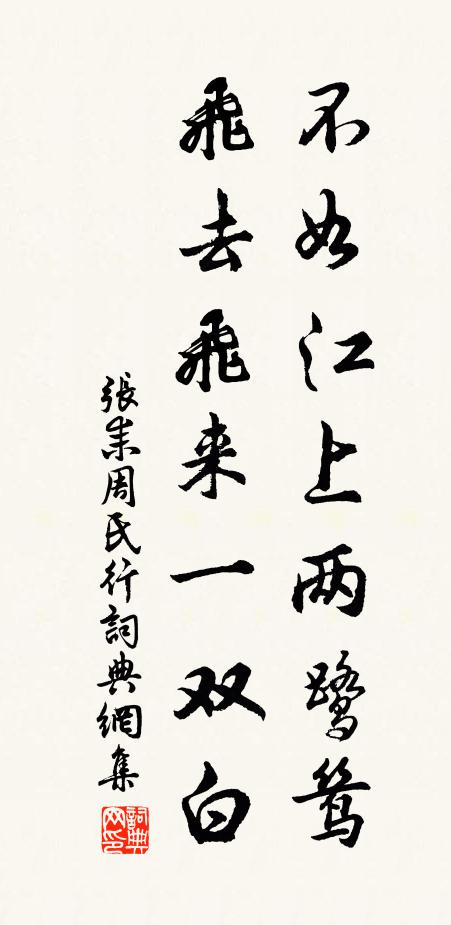 不如江上两鹭鸶
飞去飞来一双白
張耒周氏行詞典網集
詞典网印